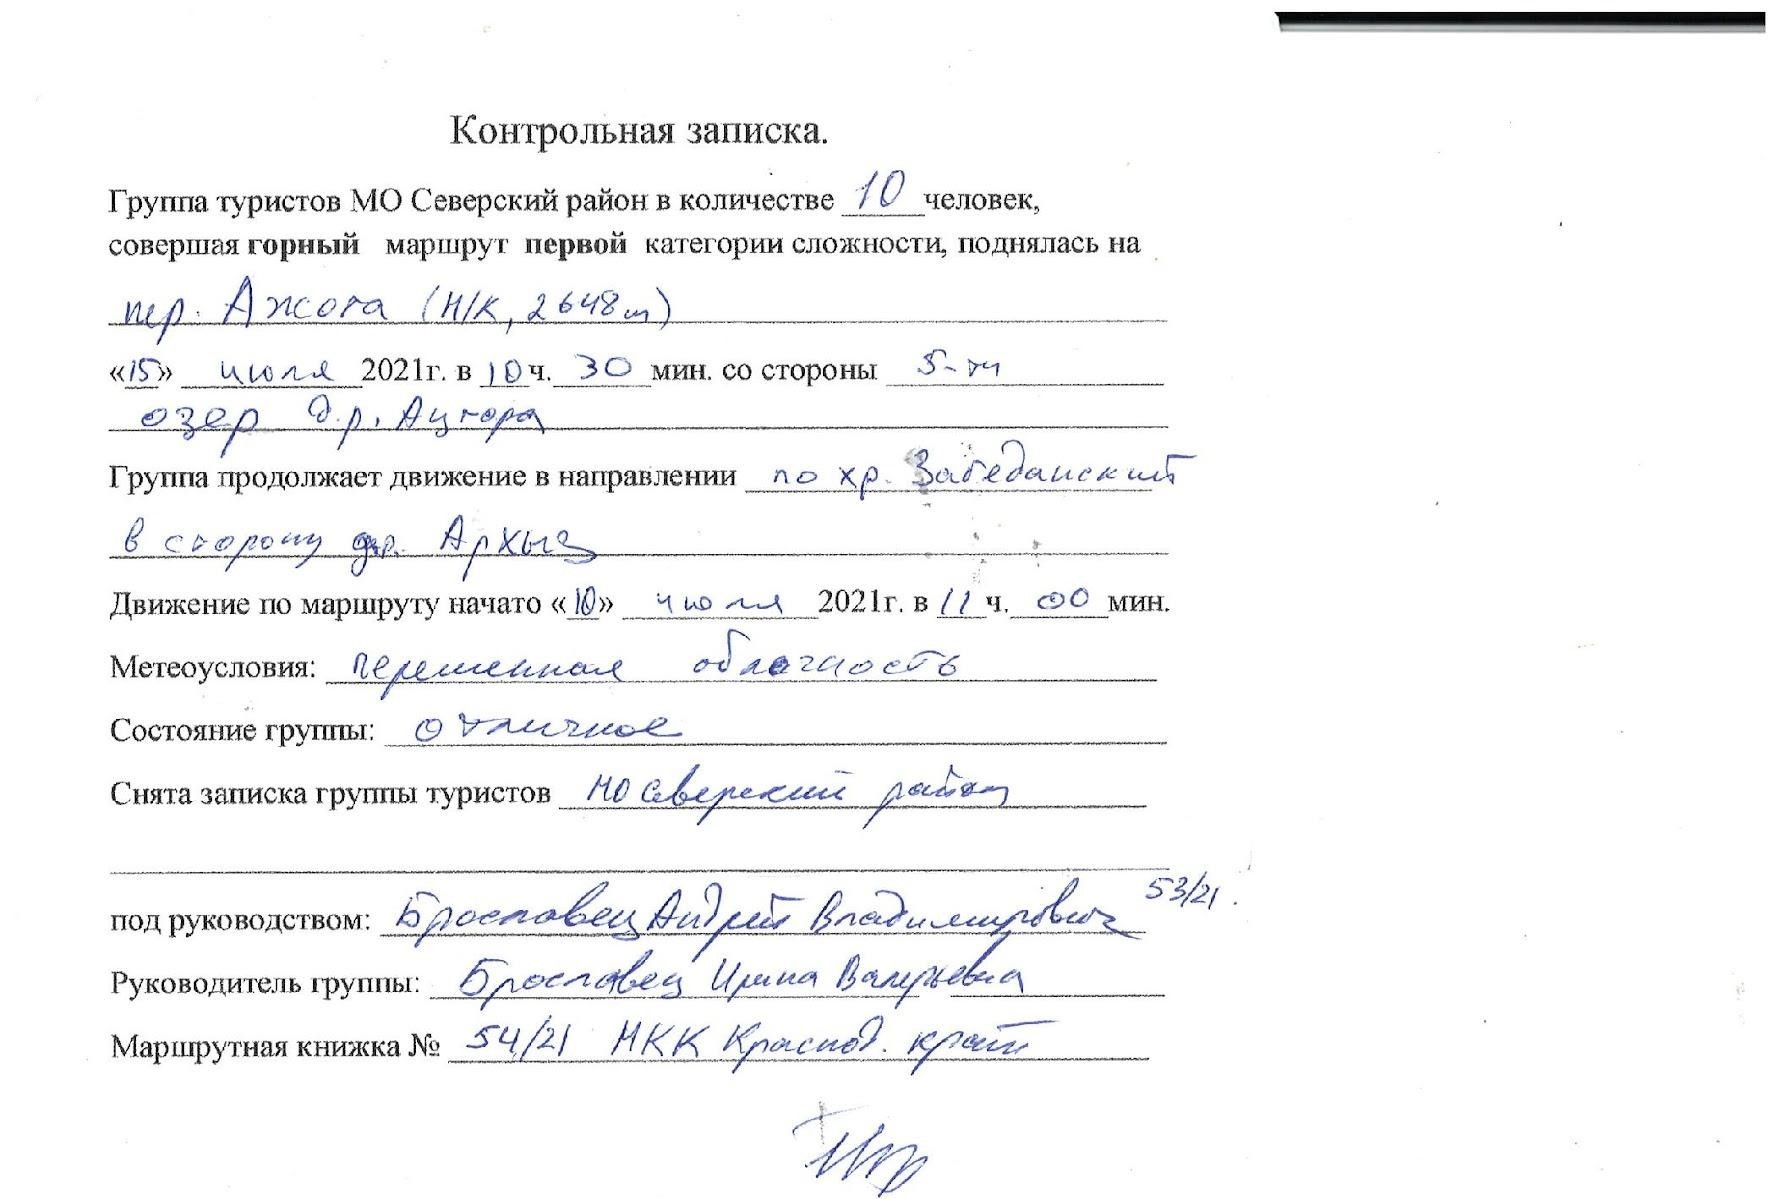 Контрольная записка.
Группа туристов МО Северский район в количестве 10 человек,
совершая горный маршрут первой категории сложности, поднялась на
пер. Ажога (Н/К, 2648м)
«15» июля 2021г. в 10ч. 30 мин. со стороны 5-ти
озер д.р. Ацгора
Группа продолжает движение в направлении по хр. Забеданский
в сторону Архыз
Движение по маршруту начато «10» июля 2021г. в 11ч. 00 мин.
Метеоусловия: переменная облачность
Состояние группы: отличное
Снята записка группы туристов МО Северский район
под руководством: Брославец Андрей Владимирович 53/21.
Руководитель группы: Брославец Ирина Валерьевна
Маршрутная книжка № 54/21 МКК Краснод. край